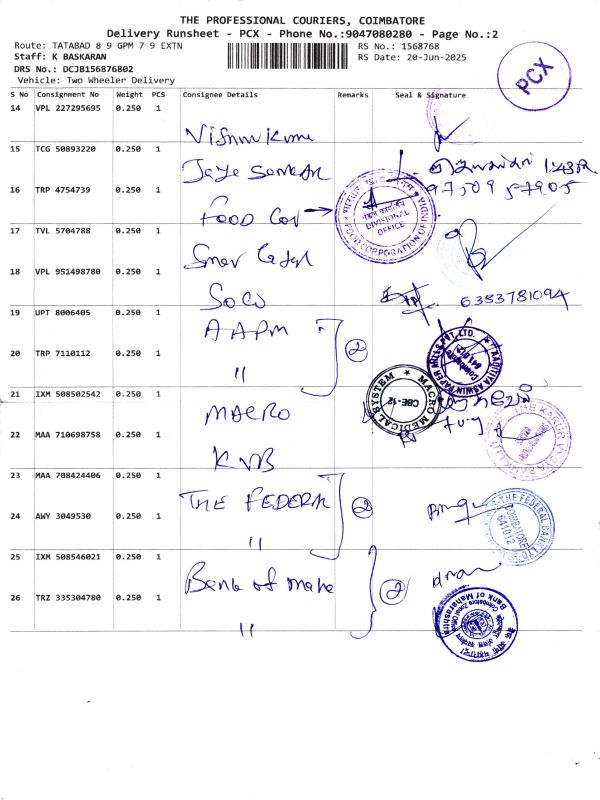 THE PROFESSIONAL COURIERS, COIMBATORE
Delivery Runsheet - PCX - Phone No.:9047080280 - Page No.:2
Route: TATABAD 8 9 GPM 7 9 EXTN
RS No.: 1568768
Staff: K BASKARAN
RS Date: 20-Jun-2025
DRS No.: DCJB156876802
Vehicle: Two Wheeler Delivery
PCX
S No Consignment No Weight PCS Consignee Details Remarks Seal & Signature
14 VPL 227295695 0.250 1
15 TCG 50893220 0.250 1
16 TRP 4754739 0.250 1
97509 57905
Food
DIVISIONAL OFFICE
FOOD CORPORATION OF INDIA
17 TVL 5704788 0.250 1
18 VPL 951498780 0.250 1
SOCO
6383781094
19 UPT 8006405 0.250 1
AAPM
2
20 TRP 7110112 0.250 1
"
AADITYA ASWIN PAPER MILLS PVT. LTD.
21 IXM 508502542 0.250 1
MACRO
MACRO MEDICAL SYSTEM
CBE-12
22 MAA 710698758 0.250 1
KVB
THE KARUR VYSYA BANK LTD
23 MAA 708424406 0.250 1
THE FEDERAL
2
24 AWY 3049530 0.250 1
"
THE FEDERAL BANK LTD.
COIMBATORE
641012
25 IXM 508546021 0.250 1
Bank of maha
2
26 TRZ 335304780 0.250 1
"
Bank of Maharashtra
Coimbatore Zonal Office